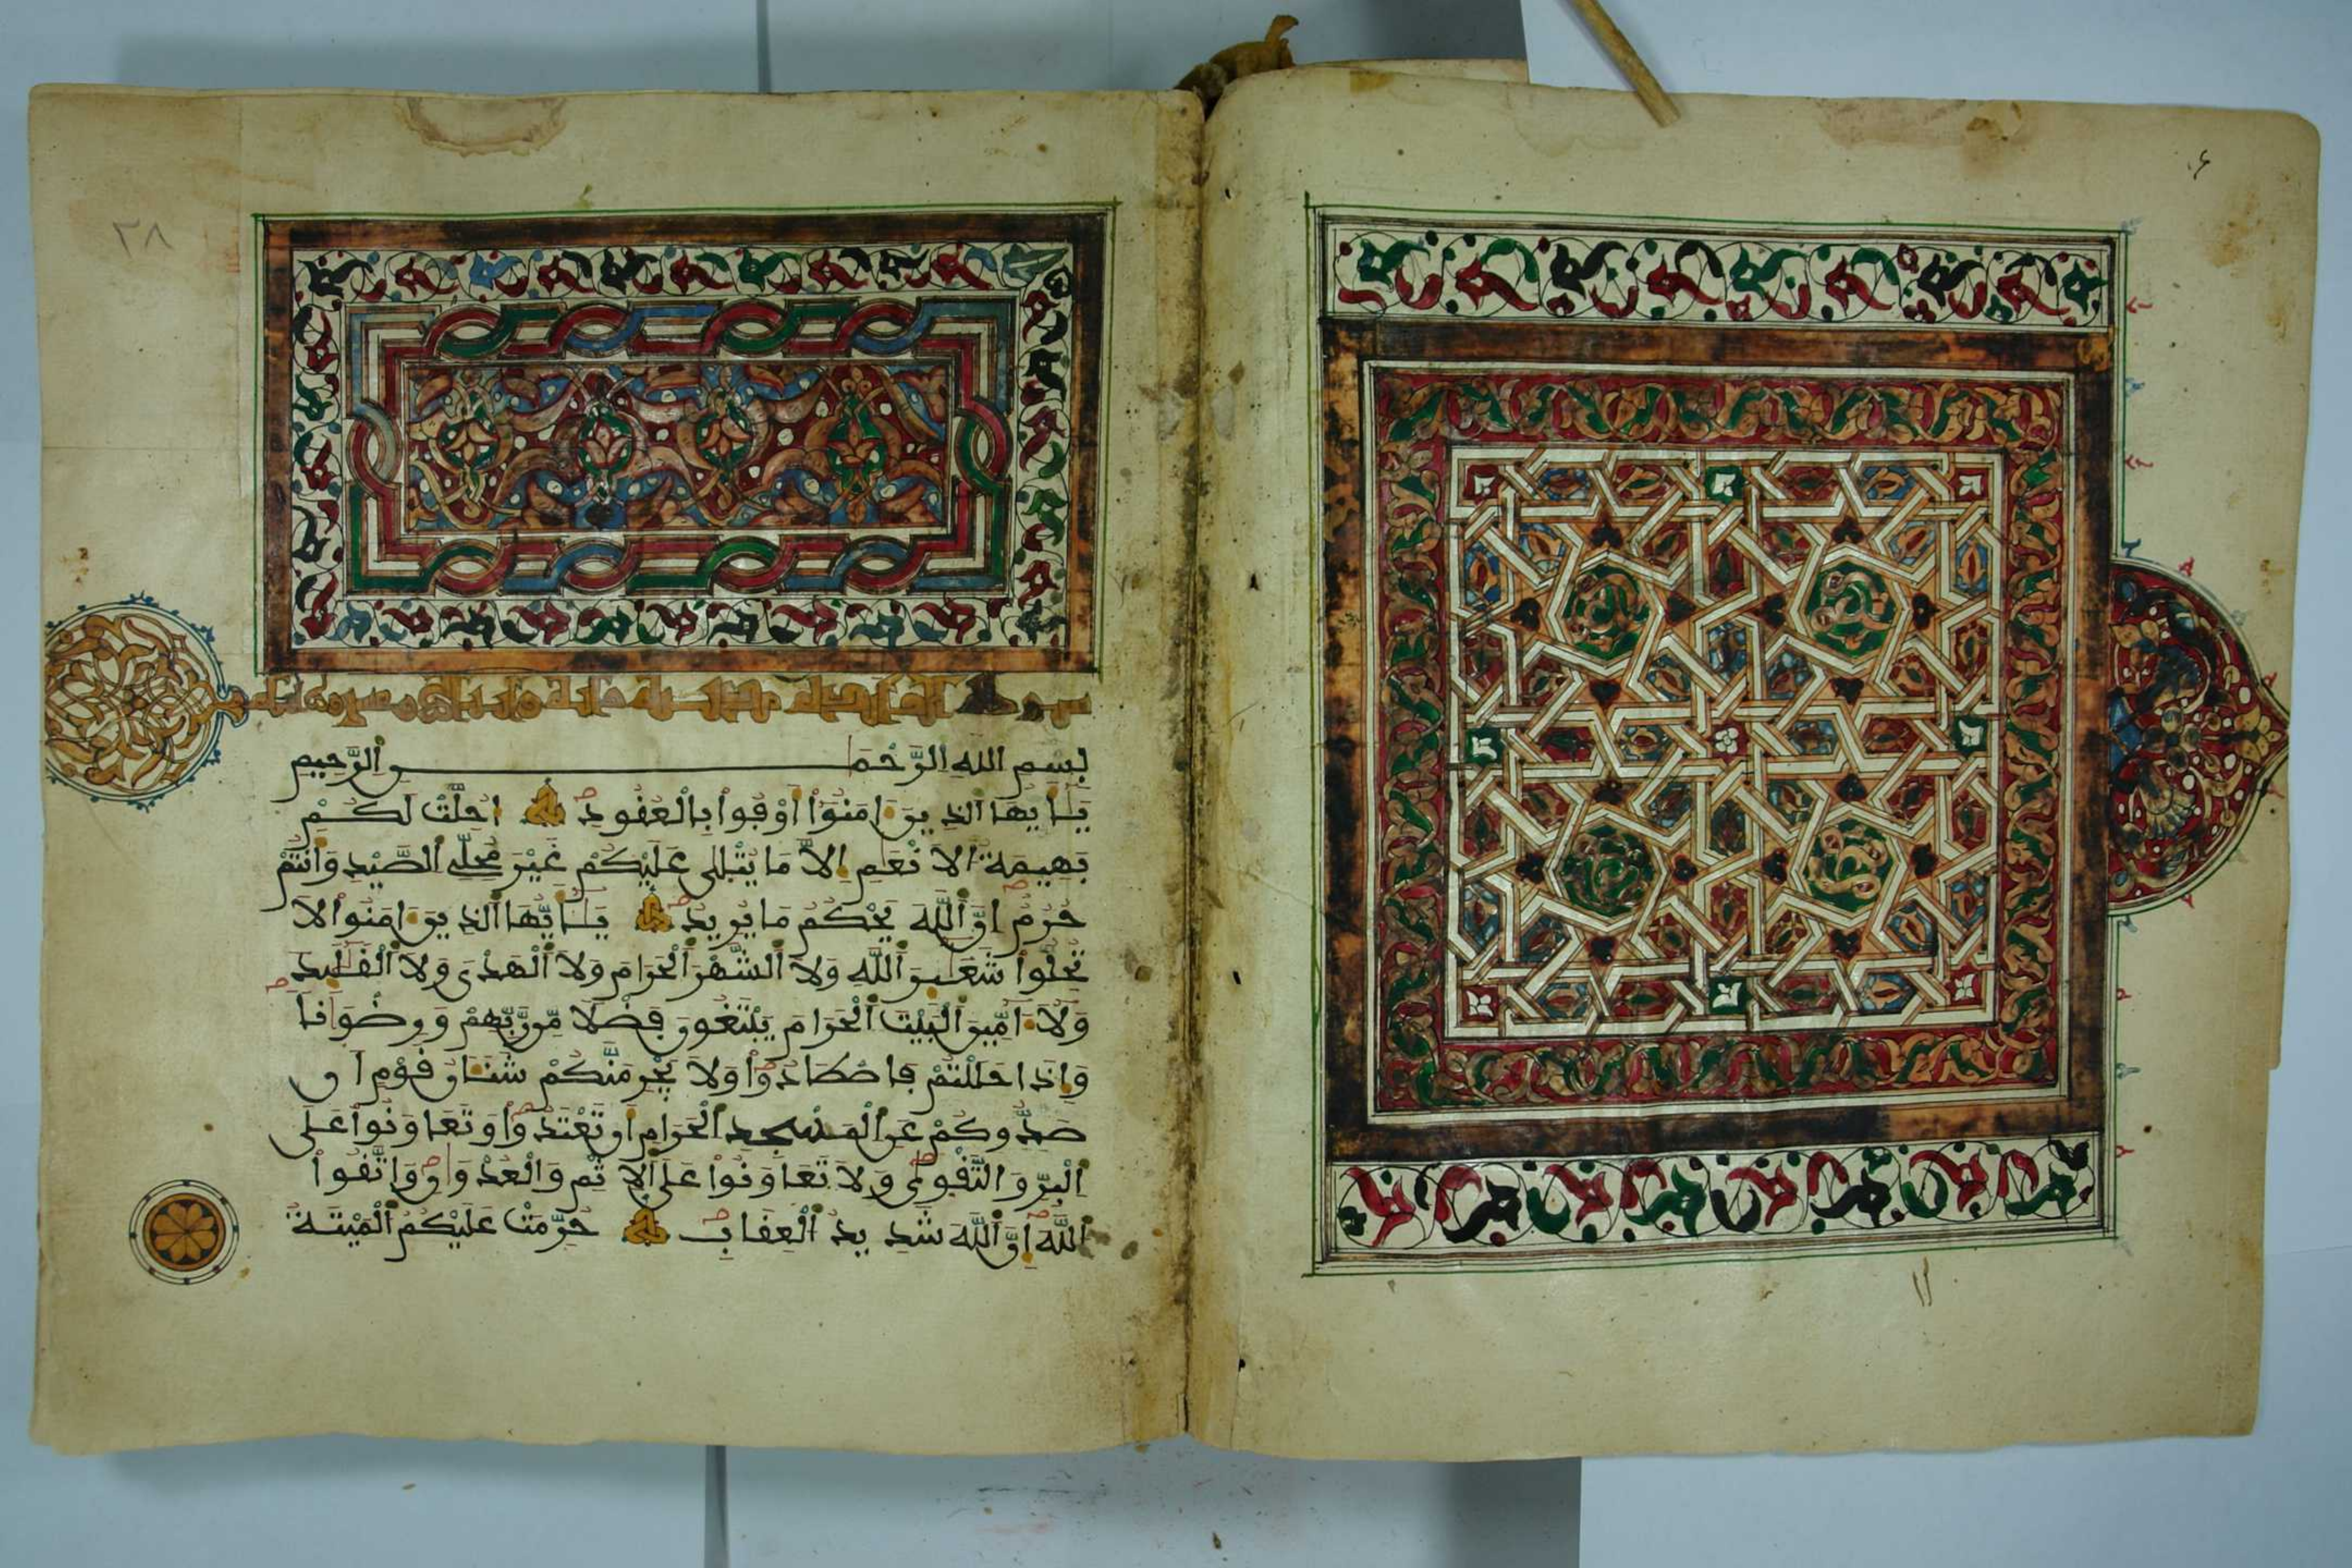 ٢٨
بسم الله الرحمن الرحيم
يَٰأَيُّهَا الذِينَ ءَامَنُوٓا أَوْفُوا بِالْعُقُودِ أُحِلَّتْ لَكُم
بَهِيمَةُ الَانْعَٰمِ إِلَّا مَا يُتْلَىٰ عَلَيْكُمْ غَيْرَ مُحِلِّي الصَّيْدِ وَأَنتُمْ
حُرُمٌ إِنَّ اللَّهَ يَحْكُمُ مَا يُرِيدُ يَٰأَيُّهَا الذِينَ ءَامَنُوا لَا
تُحِلُّوا شَعَٰٓئِرَ اللَّهِ وَلَا الشَّهْرَ الْحَرَامَ وَلَا الْهَدْيَ وَلَا الْقَلَٰٓئِدَ
وَلَآ ءَآمِّينَ الْبَيْتَ الْحَرَامَ يَبْتَغُونَ فَضْلًا مِّن رَّبِّهِمْ وَرِضْوَٰنًا
وَإِذَا حَلَلْتُمْ فَاصْطَادُوا وَلَا يَجْرِمَنَّكُمْ شَنَـَٔانُ قَوْمٍ أَن
صَدُّوكُمْ عَنِ الْمَسْجِدِ الْحَرَامِ أَن تَعْتَدُوا وَتَعَاوَنُوا عَلَى
الْبِرِّ وَالتَّقْوَىٰ وَلَا تَعَاوَنُوا عَلَى الِاثْمِ وَالْعُدْوَٰنِ وَاتَّقُوا
اللَّهَ إِنَّ اللَّهَ شَدِيدُ الْعِقَابِ حُرِّمَتْ عَلَيْكُمُ الْمَيْتَةُ